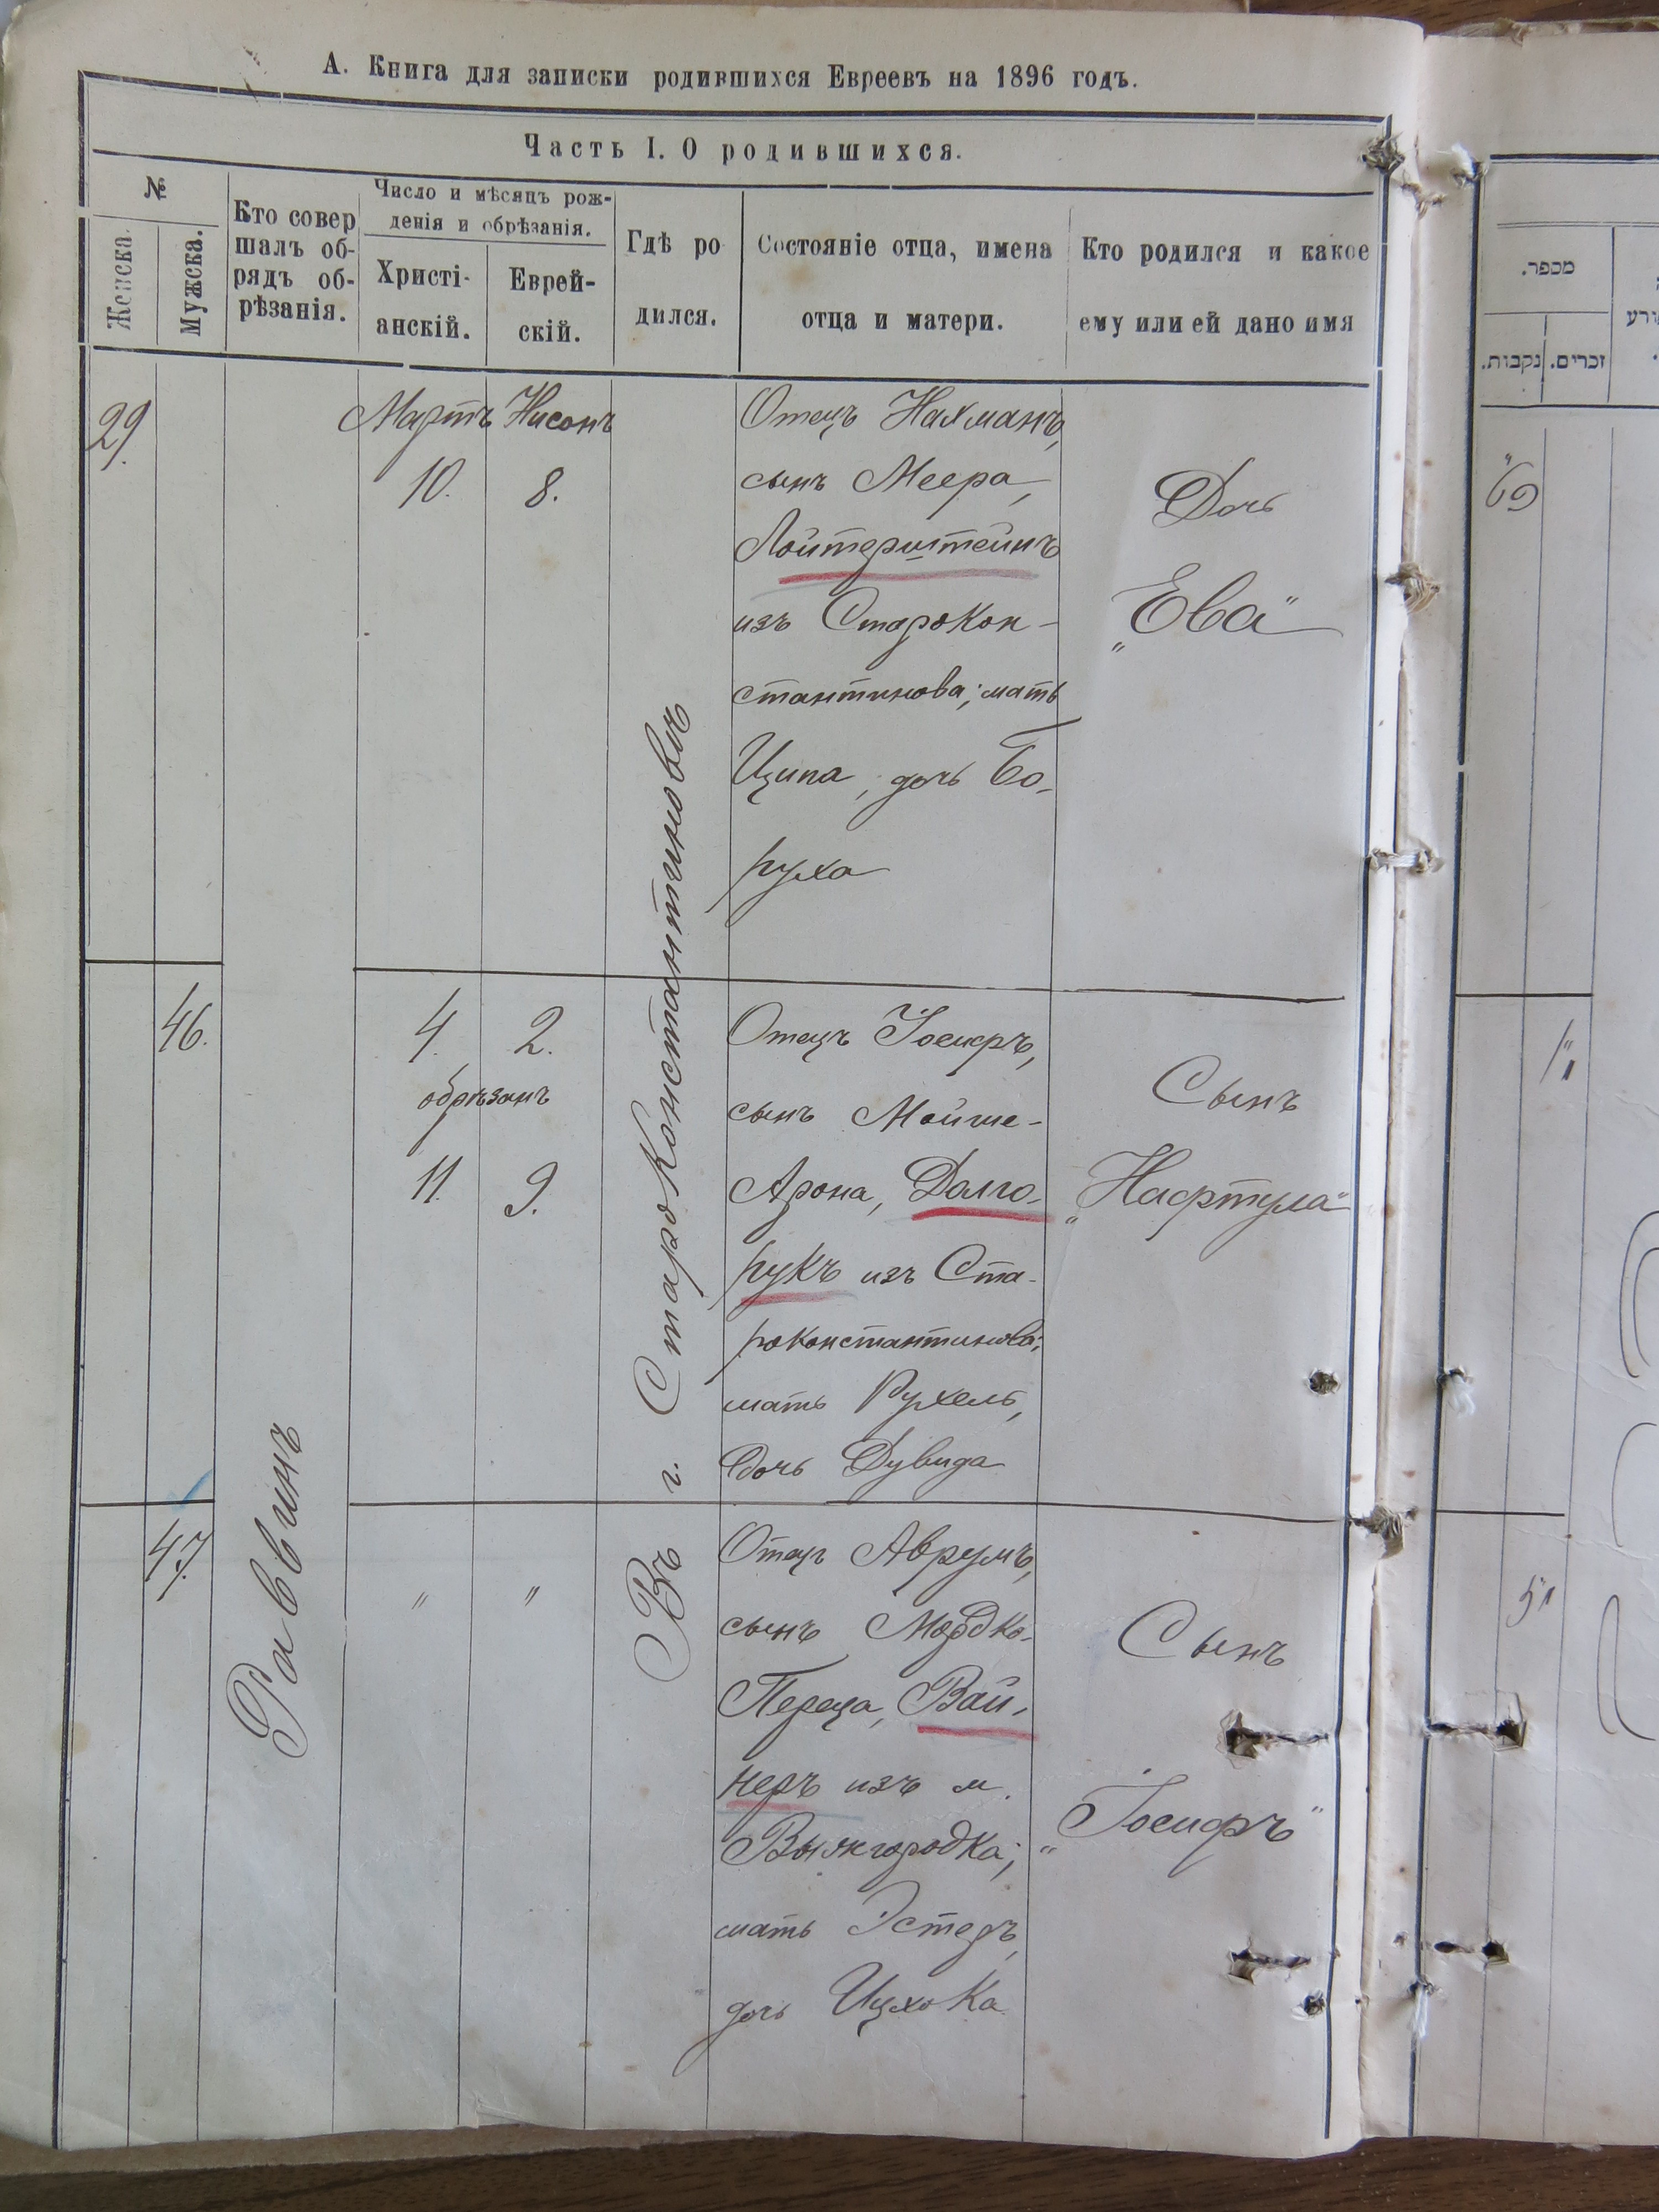 А. Книга для записки родившихся Евреевъ на 1896 годъ.
Часть I. О родившихся.
№
Женска.
Мужска.
Кто совер
шалъ об-
рядъ об-
рѣзанія.
Число и мѣсяцъ рож-
денія и обрѣзанія.
Христі-
анскій.
Еврей-
скій.
Гдѣ ро
дился.
Состояніе отца, имена
отца и матери.
Кто родился и какое
ему или ей дано имя
Раввинъ
Въ г. Староконстантиновѣ
29.
Мартъ
10.
Нисонъ
8.
Отецъ Нахманъ,
сынъ Меера,
Лойтерштейнъ
изъ Старокон-
стантинова; мать
Ципа, дочь Бо-
руха
Дочь
„Ева"
46.
4.
2.
обрѣзанъ
11.
9.
Отецъ Іосифъ,
сынъ Мойше-
Арона, Долго-
рукъ изъ Ста-
роконстантинова;
мать Рухель,
дочь Дувида
Сынъ
„Нафтула"
47.
"
"
Отецъ Аврумъ,
сынъ Мордко-
Переца, Вай-
неръ изъ м.
Выжгородка;
мать Эстеръ,
дочь Ицхока
Сынъ
„Іосифъ"
מכפר.
נקבות.
זכרים.